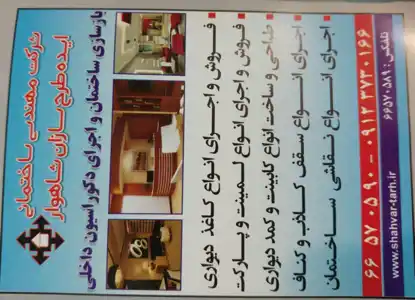 شرکت مهندسی ساختمانی
ایده طرح سازان شاهوار
بازسازی ساختمان و اجرای دکوراسیون داخلی
فروش و اجرای انواع کاغذ دیواری
فروش و اجرای انواع لمینت و پارکت
طراحی و ساخت انواع کابینت و کمد دیواری
اجرای انواع سقف کلاب و کناف
اجرای انواع نقاشی ساختمان
۶۶ ۵۷ ۰ ۵۹۰ - ۰۹۱۲ ۳۷۳ ۰ ۱۶۶
www.shahvar-tarh.ir
تلفکس: ۶۶۵۷۰۵۸۹